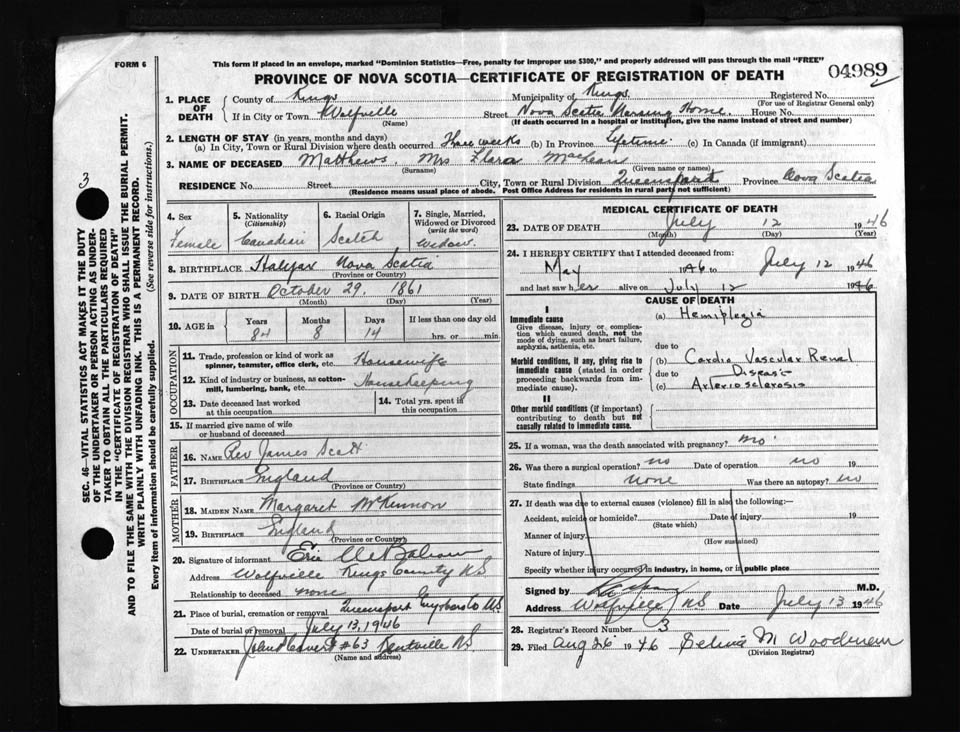 FORM 6
This form if placed in an envelope, marked "Dominion Statistics—Free, penalty for improper use $300," and properly addressed will pass through the mail "FREE"
PROVINCE OF NOVA SCOTIA—CERTIFICATE OF REGISTRATION OF DEATH
04989
1. PLACE OF DEATH
County of Kings Municipality of Kings Registered No.
(For use of Registrar General only)
If in City or Town Wolfville Street Nova Scotia Nursing Home House No.
(Name) (If death occurred in a hospital or institution, give the name instead of street and number)
2. LENGTH OF STAY (in years, months and days)
(a) In City, Town or Rural Division where death occurred Three weeks (b) In Province Lifetime (c) In Canada (if immigrant)
3. NAME OF DECEASED Matthews, Mrs Flora MacLean
(Surname) (Given name or names)
RESIDENCE No. Street City, Town or Rural Division Queensport Province Nova Scotia
(Residence means usual place of abode. Post Office Address for residents in rural parts not sufficient)
4. Sex
Female
5. Nationality
(Citizenship)
Canadian
6. Racial Origin
Scotch
7. Single, Married, Widowed or Divorced
(write the word)
Widow
8. BIRTHPLACE Halifax Nova Scotia
(Province or Country)
9. DATE OF BIRTH October 29, 1861
(Month) (Day) (Year)
10. AGE in
Years Months Days If less than one day old
84 8 14 hrs. or min.
OCCUPATION
11. Trade, profession or kind of work as spinner, teamster, office clerk, etc. Housewife
12. Kind of industry or business, as cotton-mill, lumbering, bank, etc. Housekeeping
13. Date deceased last worked at this occupation
14. Total yrs. spent in this occupation
15. If married give name of wife or husband of deceased
FATHER
16. NAME Rev James Scott
17. BIRTHPLACE England
(Province or Country)
MOTHER
18. MAIDEN NAME Margaret McKinnon
19. BIRTHPLACE England
(Province or Country)
20. Signature of informant Eric
Address Wolfville Kings County NS
Relationship to deceased none
21. Place of burial, cremation or removal Queensport Guysboro Co NS
Date of burial or removal July 13, 1946
22. UNDERTAKER #63 Kentville NS
(Name and address)
MEDICAL CERTIFICATE OF DEATH
23. DATE OF DEATH July 12 1946
(Month) (Day) (Year)
24. I HEREBY CERTIFY that I attended deceased from:
May 1946 to July 12 1946
and last saw her alive on July 12 1946
CAUSE OF DEATH
I
Immediate cause
Give disease, injury or complication which caused death, not the mode of dying, such as heart failure, asphyxia, asthenia, etc.
(a) Hemiplegia
due to
Morbid conditions, if any, giving rise to immediate cause (stated in order proceeding backwards from immediate cause).
(b) Cardio Vascular Renal
due to Disease
(c) Arteriosclerosis
II
Other morbid conditions (if important) contributing to death but not causally related to immediate cause.
25. If a woman, was the death associated with pregnancy? no
26. Was there a surgical operation? no Date of operation no 19
State findings none Was there an autopsy? no
27. If death was due to external causes (violence) fill in also the following:—
Accident, suicide or homicide? Date of injury 19
(State which)
Manner of injury
(How sustained)
Nature of injury
Specify whether injury occurred in industry, in home, or in public place
Signed by M.D.
Address Wolfville NS Date July 13 1946
28. Registrar's Record Number 3
29. Filed Aug 26 1946 Selina M Woodman
(Division Registrar)
3
SEC. 46—VITAL STATISTICS ACT MAKES IT THE DUTY
OF THE UNDERTAKER OR PERSON ACTING AS UNDER-
TAKER TO OBTAIN ALL THE PARTICULARS REQUIRED
IN THE "CERTIFICATE OF REGISTRATION OF DEATH"
AND TO FILE THE SAME WITH THE DIVISION REGISTRAR WHO SHALL ISSUE THE BURIAL PERMIT.
WRITE PLAINLY WITH UNFADING INK. THIS IS A PERMANENT RECORD.
Every item of information should be carefully supplied. (See reverse side for instructions.)